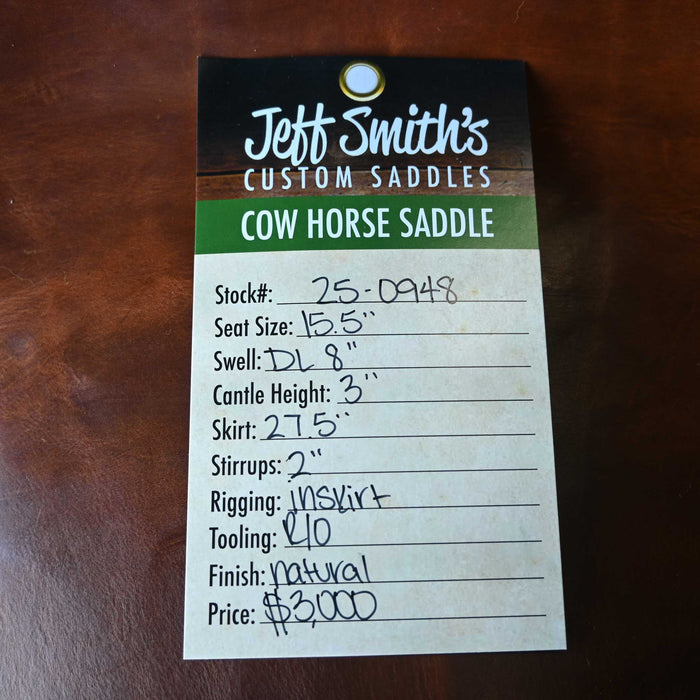 Jeff Smith's
CUSTOM SADDLES
COW HORSE SADDLE
Stock#: 25-0948
Seat Size: 15.5"
Swell: DL 8"
Cantle Height: 3"
Skirt: 27.5"
Stirrups: 2"
Rigging: inskirt
Tooling: R/O
Finish: natural
Price: $3,000